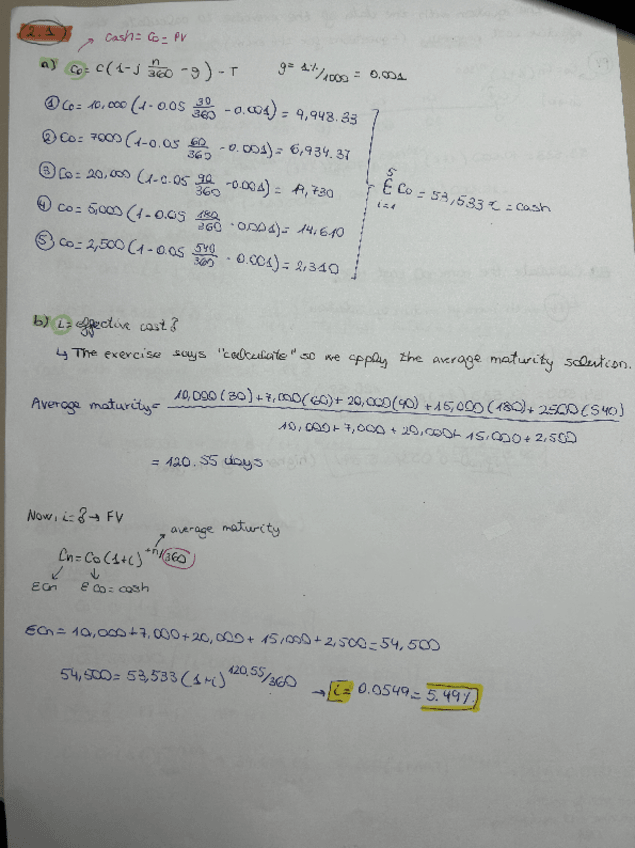 2.1)
Cash = Co = PV
a) Co = C(1-j n/360 - g) - T    g = 1‰/1000 = 0.001
① Co = 10,000 (1-0.05 30/360 - 0.001) = 9,948.33
② Co = 7000 (1-0.05 60/360 - 0.001) = 6,934.37
③ Co = 20,000 (1-0.05 90/360 - 0.001) = 19,730
④ Co = 5,000 (1-0.05 180/360 - 0.001) = 14,610
⑤ Co = 2,500 (1-0.05 540/360 - 0.001) = 2,310
5 Σ i=1 Co = 53,533 € = cash
b) i = effective cost?
↳ The exercise says "calculate" so we apply the average maturity solution.
Average maturity = 10,000(30)+7,000(60)+20,000(90)+15,000(180)+2500(540)
10,000+7,000+20,000+15,000+2,500
= 120.55 days
Now, i=? → FV
average maturity
Cn = Co(1+i)^+n/360
ΣCn    ΣCo = cash
ΣCn = 10,000+7,000+20,000+15,000+2,500 = 54,500
54,500 = 53,533 (1+i)^120,55/360 → i = 0.0549 = 5.49%